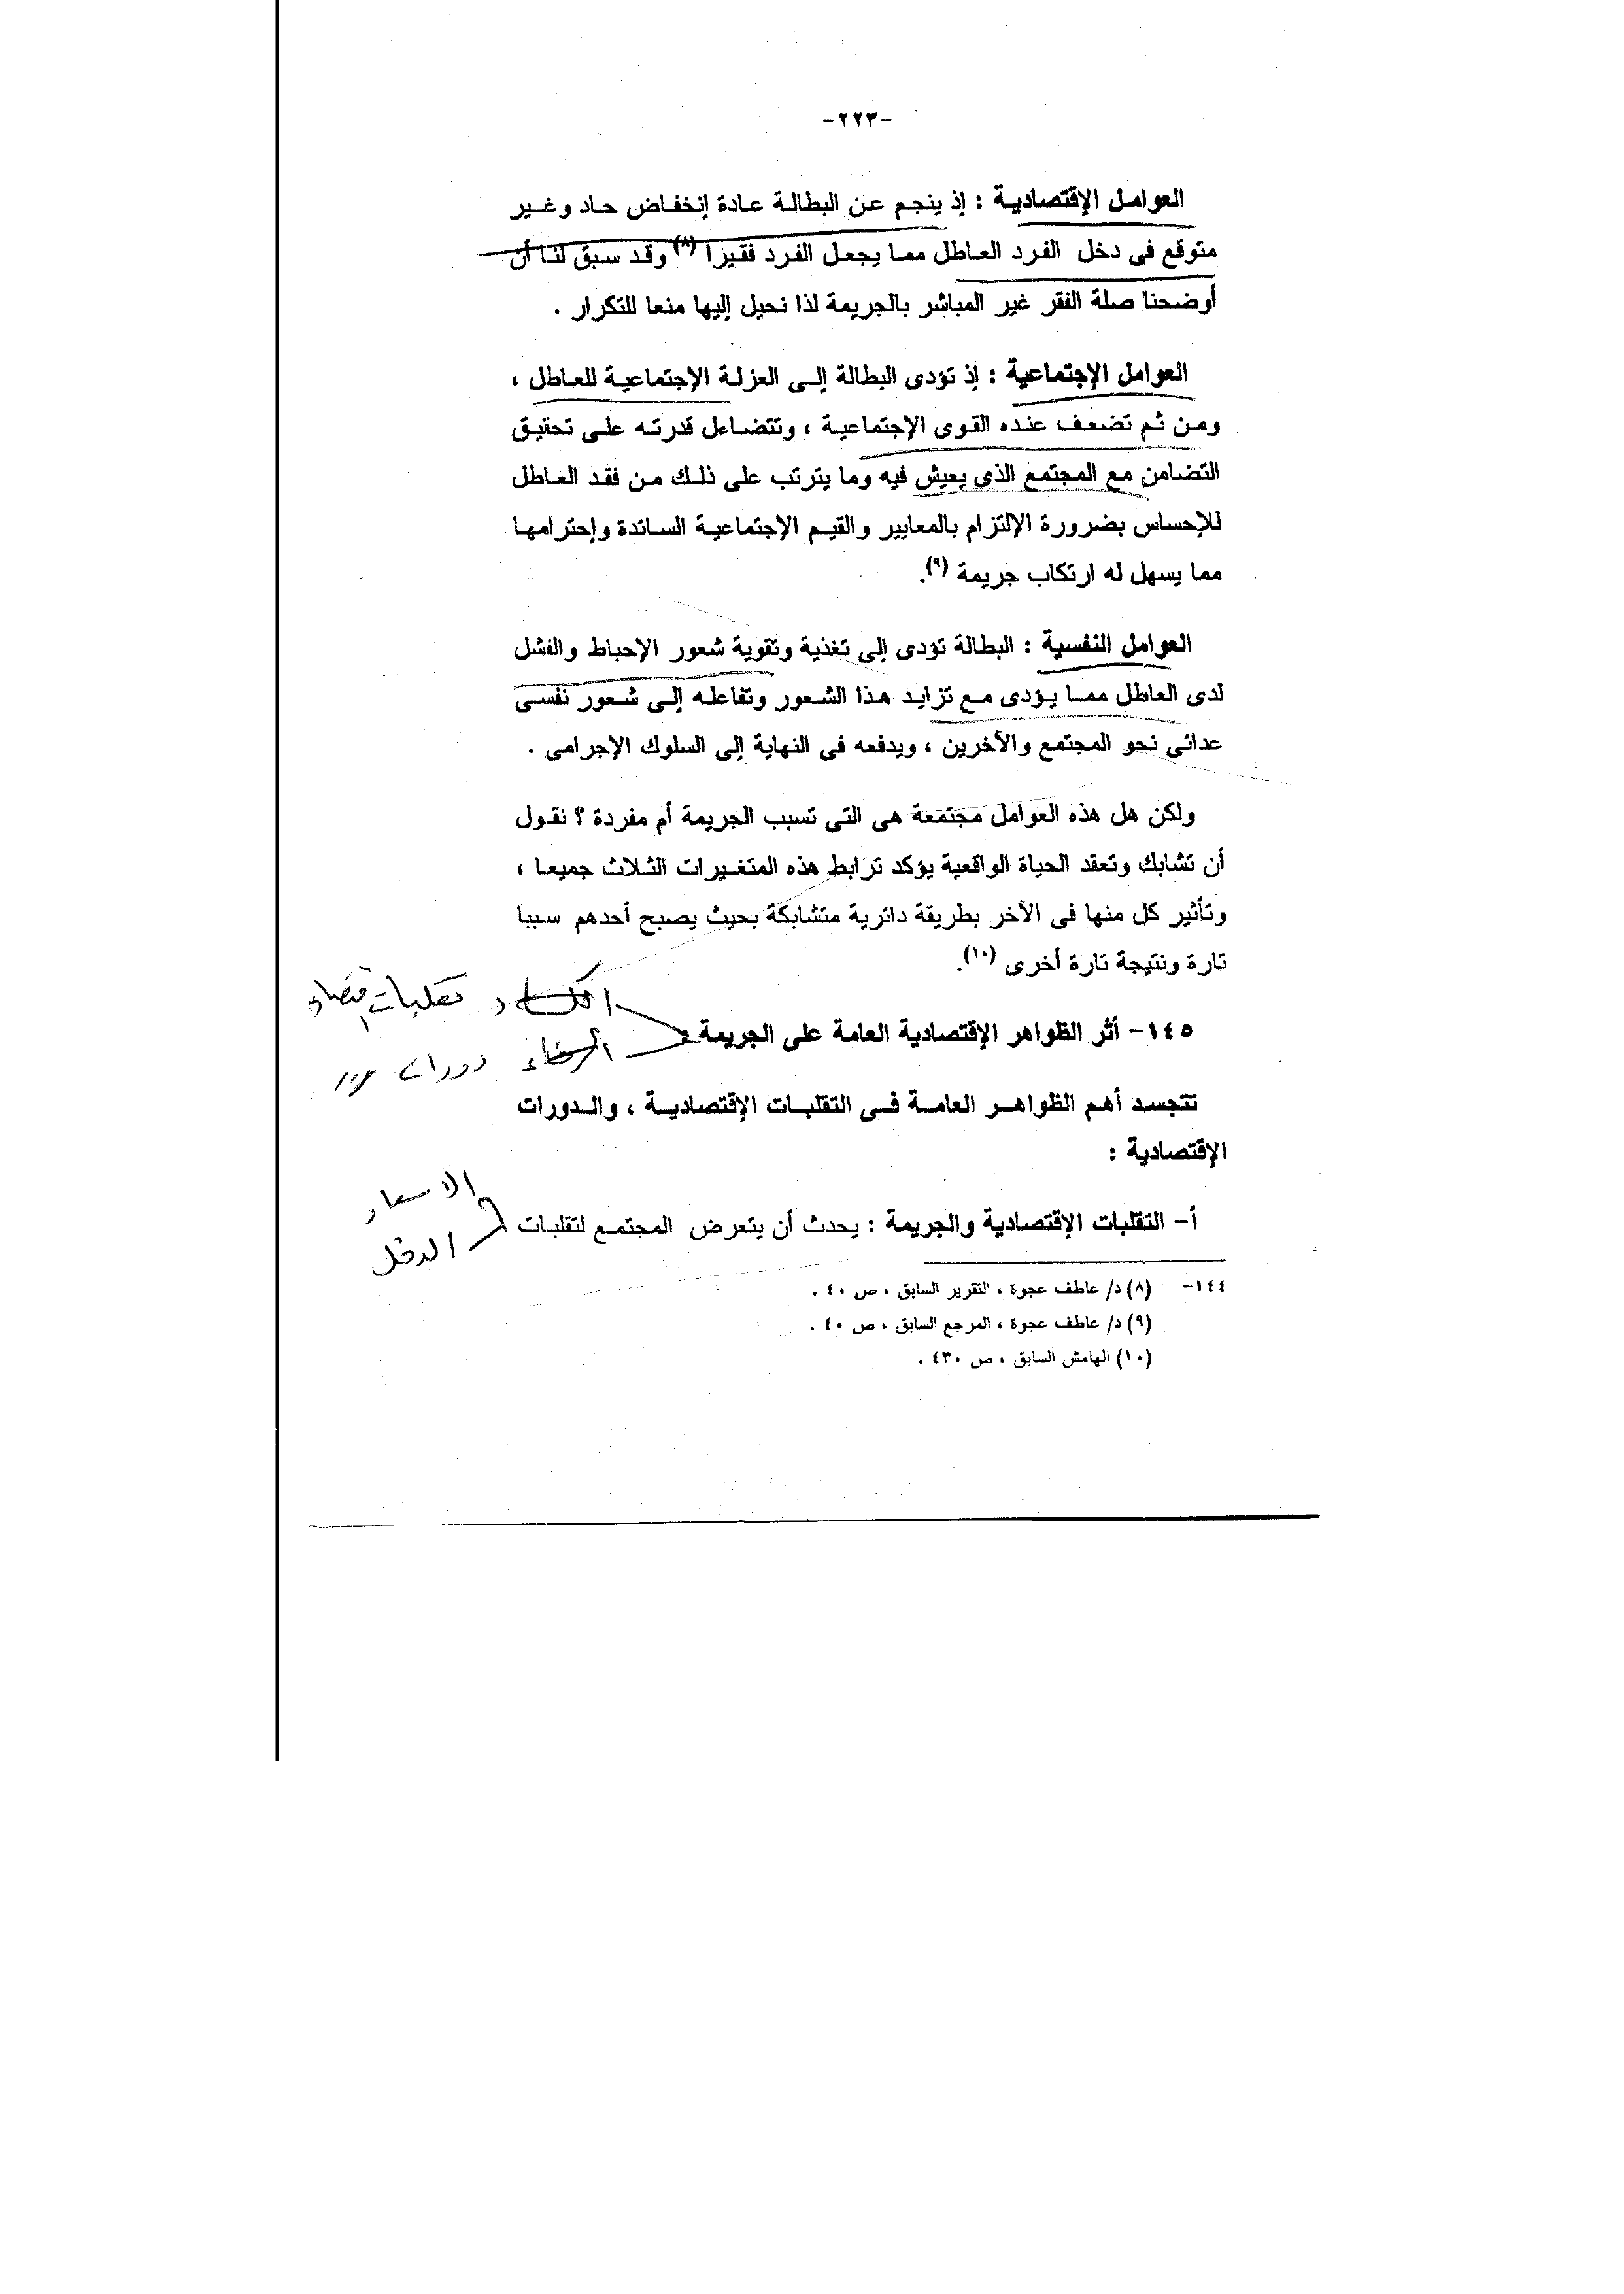 -٢٢٣-
العوامل الإقتصادية : إذ ينجم عن البطالة عادة إنخفاض حاد وغير
متوقع فى دخل الفرد العاطل مما يجعل الفرد فقيرا (٨) وقد سبق لنا أن
أوضحنا صلة الفقر غير المباشر بالجريمة لذا نحيل إليها منعا للتكرار .
العوامل الإجتماعية : إذ تؤدى البطالة إلى العزلة الإجتماعية للعاطل ،
ومن ثم تضعف عنده القوى الإجتماعية ، وتتضاءل قدرته على تحقيق
التضامن مع المجتمع الذى يعيش فيه وما يترتب على ذلك من فقد العاطل
للإحساس بضرورة الإلتزام بالمعايير والقيم الإجتماعية السائدة وإحترامها
مما يسهل له ارتكاب جريمة (٩).
العوامل النفسية : البطالة تؤدى إلى تغذية وتقوية شعور الإحباط والفشل
لدى العاطل مما يؤدى مع تزايد هذا الشعور وتفاعله إلى شعور نفسى
عدائى نحو المجتمع والآخرين ، ويدفعه فى النهاية إلى السلوك الإجرامى .
ولكن هل هذه العوامل مجتمعة هى التى تسبب الجريمة أم مفردة ؟ نقول
أن تشابك وتعقد الحياة الواقعية يؤكد ترابط هذه المتغيرات الثلاث جميعا ،
وتأثير كل منها فى الآخر بطريقة دائرية متشابكة بحيث يصبح أحدهم سببا
تارة ونتيجة تارة أخرى (١٠).
الكساد تقلبات
١٤٥- أثر الظواهر الإقتصادية العامة على الجريمة :
الرخاء دورات
تتجسد أهم الظواهر العامة فى التقلبات الإقتصادية ، والدورات
الإقتصادية :
الاسعار
أ- التقلبات الإقتصادية والجريمة : يحدث أن يتعرض المجتمع لتقلبات
الدخل
١٤٤- (٨) د/ عاطف عجوة ، التقرير السابق ، ص ٤٠ .
(٩) د/ عاطف عجوة ، المرجع السابق ، ص ٤٠ .
(١٠) الهامش السابق ، ص ٤٣٠ .